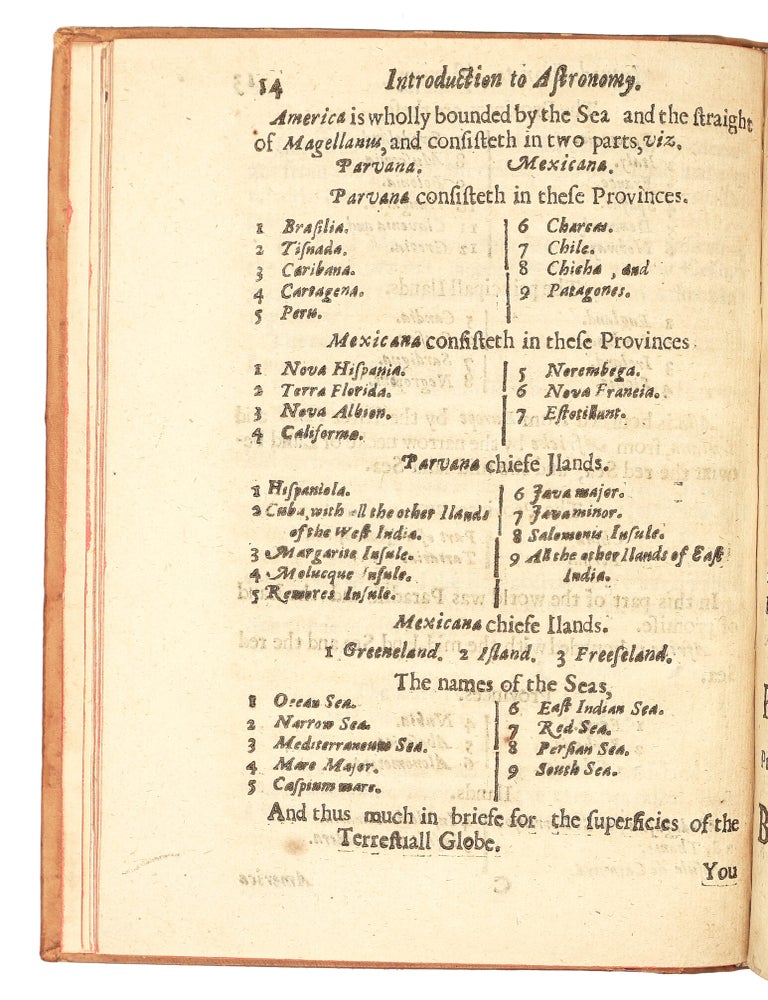 14 Introduction to Aſtronomy.
America is wholly bounded by the Sea and the ſtraight
of Magellanus, and conſiſteth in two parts, viz.
Parvana. Mexicana.
Parvana conſiſteth in theſe Provinces.
1 Braſilia.
2 Tiſnada.
3 Caribana.
4 Cartagena.
5 Peru.
6 Charcas.
7 Chile.
8 Chicha, and
9 Patagones.
Mexicana conſiſteth in theſe Provinces
1 Nova Hiſpania.
2 Terra Florida.
3 Nova Albion.
4 Californa.
5 Norembega.
6 Nova Francia.
7 Eſtotillant.
Parvana chiefe Ilands.
1 Hiſpaniola.
2 Cuba, with all the other Ilands
of the Weſt India.
3 Margarite Inſule.
4 Molucque Inſule.
5 Inſule.
6 Java major.
7 Java minor.
8 Salomonis Inſule.
9 All the other Ilands of Eaſt
India.
Mexicana chiefe Ilands.
1 Greeneland. 2 Iſland. 3 Freeſeland.
The names of the Seas,
1 Ocean Sea.
2 Narrow Sea.
3 Mediterraneum Sea.
4 Mare Major.
5 Caſpium mare.
6 Eaſt Indian Sea.
7 Red Sea.
8 Perſian Sea.
9 South Sea.
And thus much in briefe for the ſuperficies of the
Terreſtiall Globe.
You